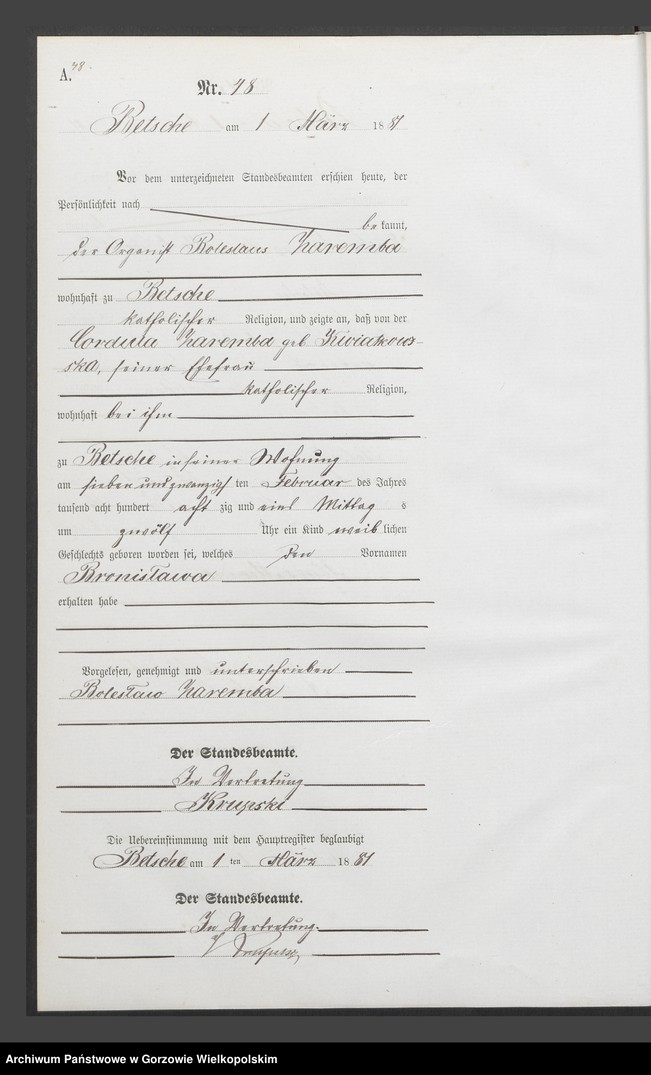 A. 48.
Nr. 48
Betsche am 1 März 1881
Vor dem unterzeichneten Standesbeamten erschien heute, der
Persönlichkeit nach
bekannt,
der Organist Boleslaus Zaremba
wohnhaft zu Betsche
katholischer Religion, und zeigte an, daß von der
Cordula Zaremba geb Kwiatkows-
ska, seiner Ehefrau
katholischer Religion,
wohnhaft bei ihm
zu Betsche in seiner Wohnung
am sieben und zwanzigsten Februar des Jahres
tausend acht hundert acht zig und eins Mittag s
um zwölf Uhr ein Kind weiblichen
Geschlechts geboren worden sei, welches den Vornamen
Bronisława
erhalten habe
Vorgelesen, genehmigt und unterschrieben
Bolesław Zaremba
Der Standesbeamte.
In Vertretung
Krupski
Die Uebereinstimmung mit dem Hauptregister beglaubigt
Betsche am 1 ten März 1881
Der Standesbeamte.
In Vertretung.
Archiwum Państwowe w Gorzowie Wielkopolskim